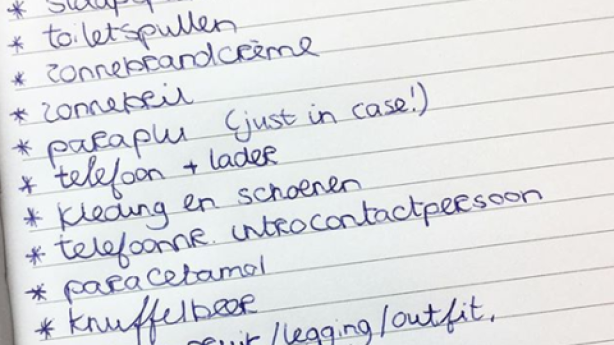 * toiletspullen
* zonnebrandcrème
* zonnebril
* paraplu (just in case!)
* telefoon + lader
* kleding en schoenen
* telefoonnr. introcontactpersoon
* paracetamol
* knuffelbeer
/legging/outfit.